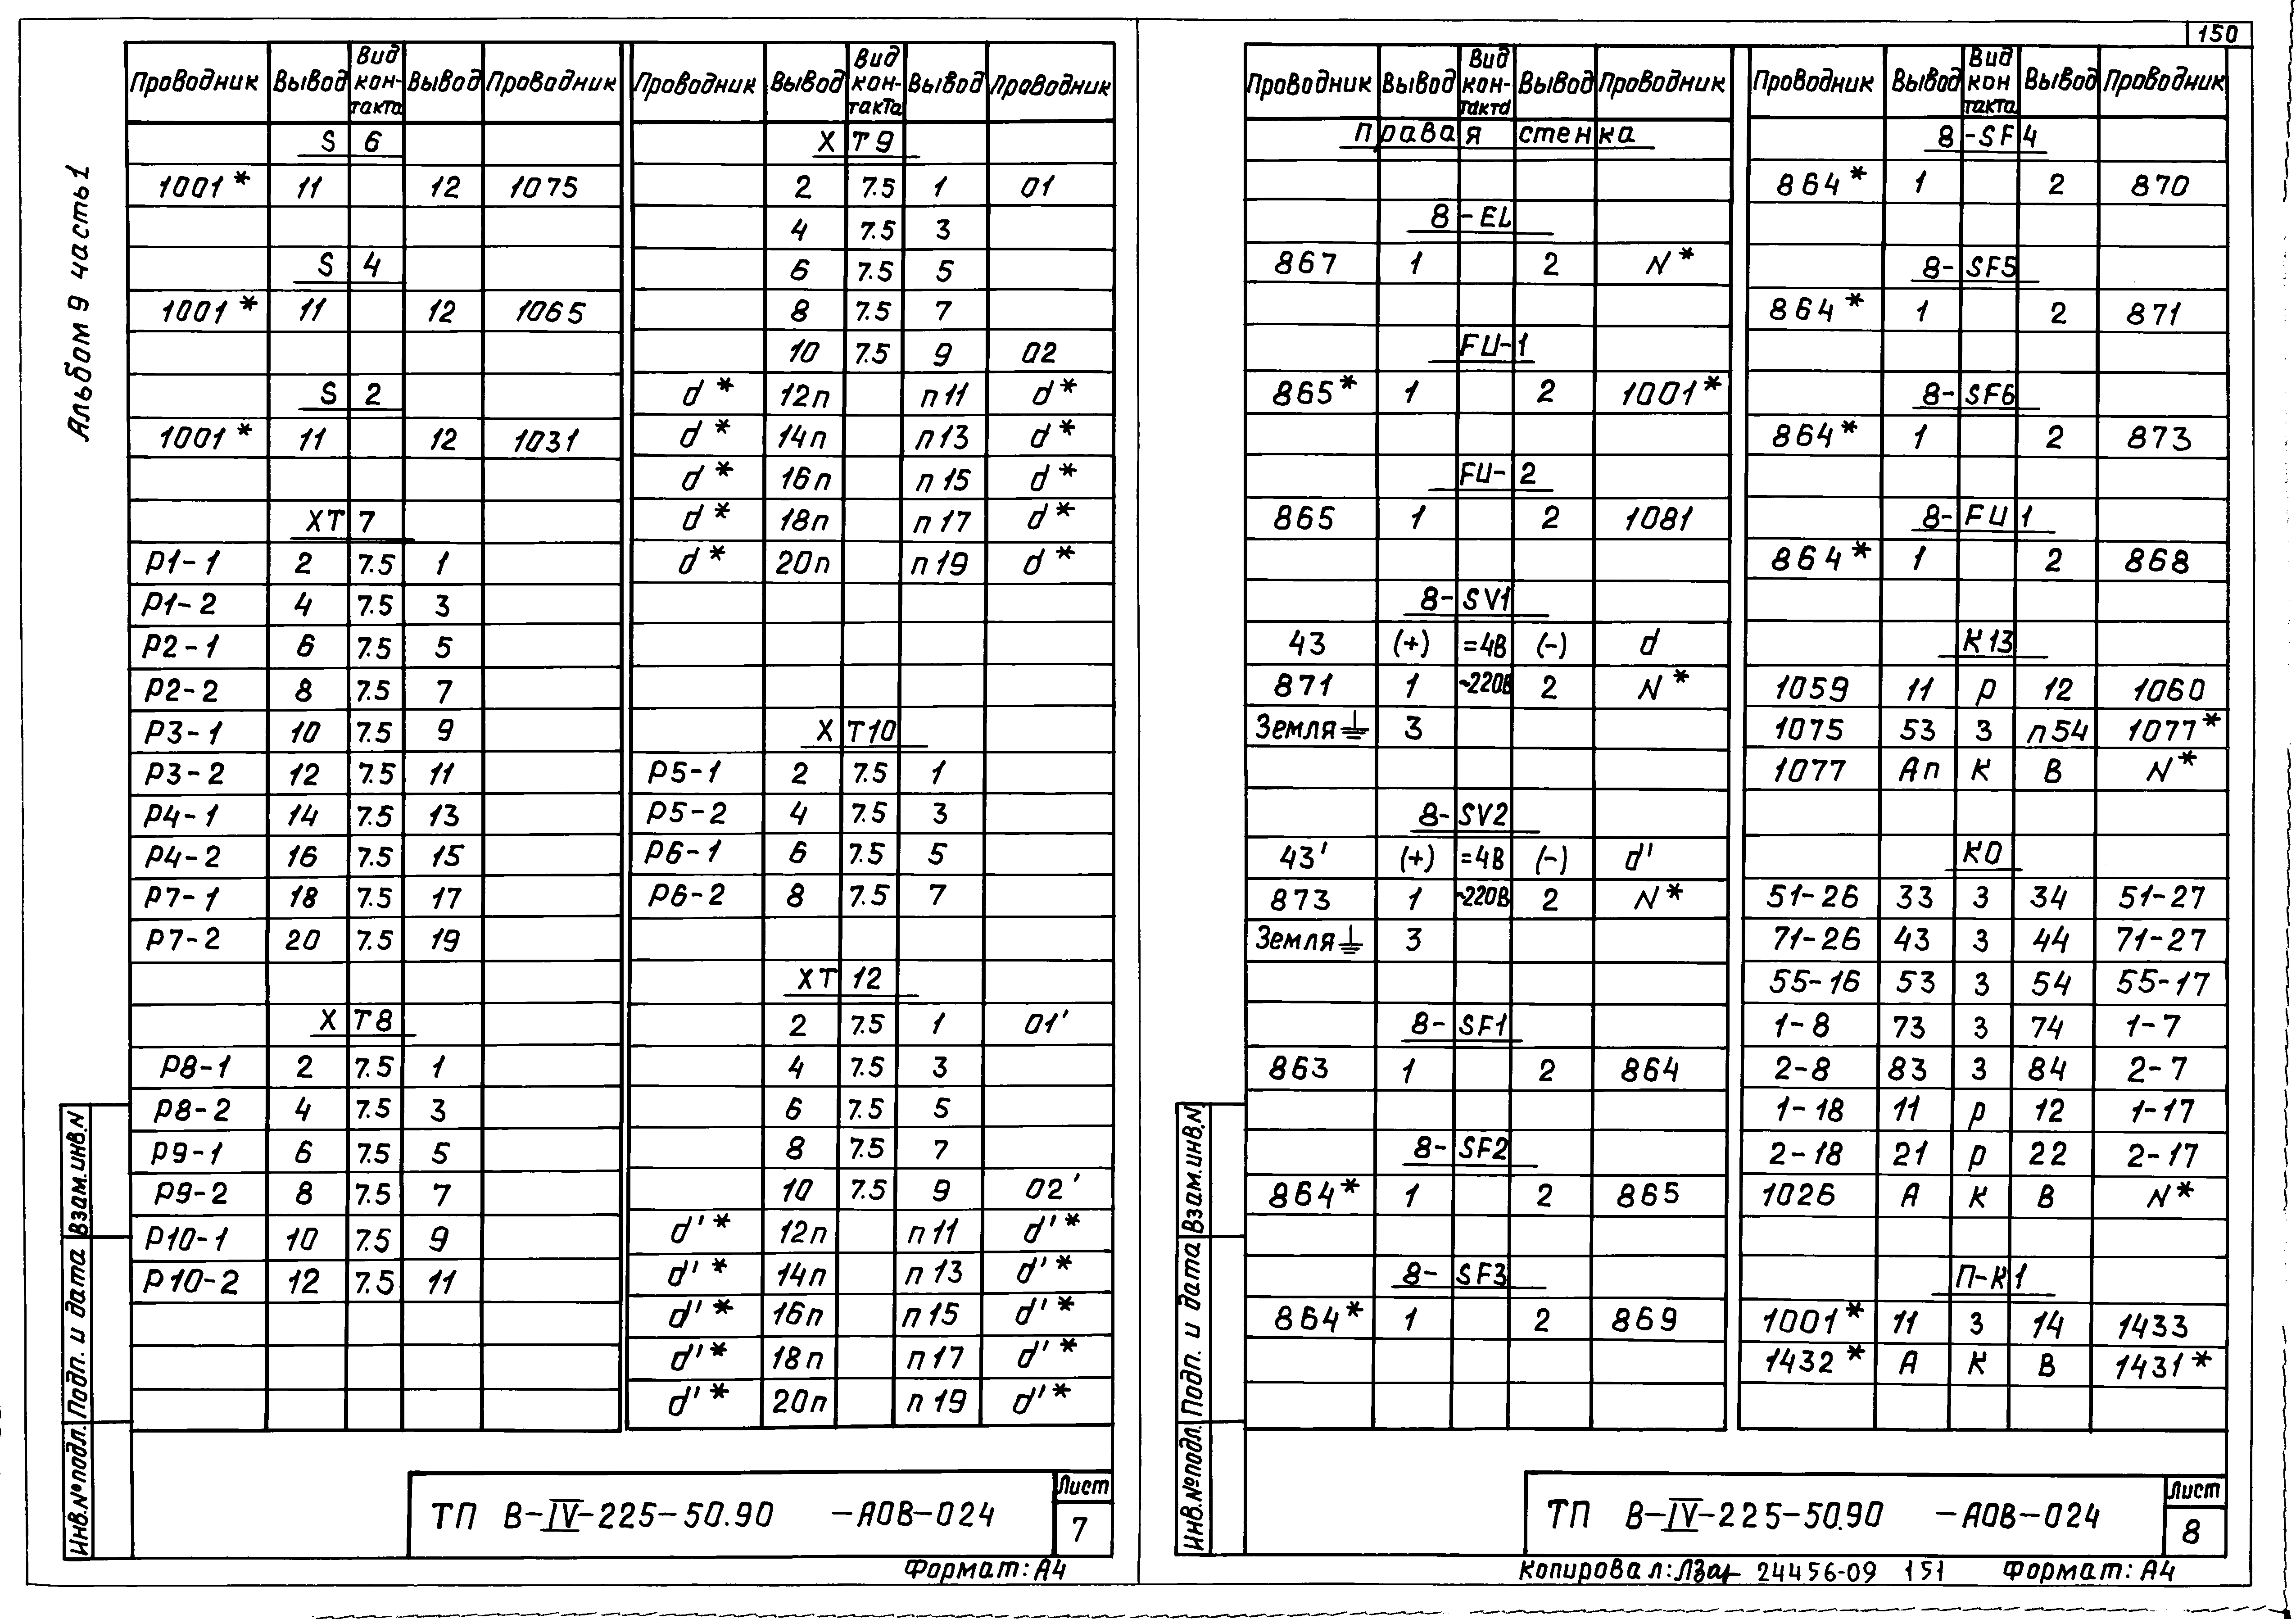 150
Альбом 9 часть 1
Проводник Вывод Вид кон-такта Вывод Проводник
S 6
1001* 11 12 1075
S 4
1001* 11 12 1065
S 2
1001* 11 12 1031
XT 7
P1-1 2 7.5 1
P1-2 4 7.5 3
P2-1 6 7.5 5
P2-2 8 7.5 7
P3-1 10 7.5 9
P3-2 12 7.5 11
P4-1 14 7.5 13
P4-2 16 7.5 15
P7-1 18 7.5 17
P7-2 20 7.5 19
X T8
P8-1 2 7.5 1
P8-2 4 7.5 3
P9-1 6 7.5 5
P9-2 8 7.5 7
P10-1 10 7.5 9
P10-2 12 7.5 11
Проводник Вывод Вид кон-такта Вывод Проводник
X T9
2 7.5 1 01
4 7.5 3
6 7.5 5
8 7.5 7
10 7.5 9 02
d* 12п п11 d*
d* 14п п13 d*
d* 16п п15 d*
d* 18п п17 d*
d* 20п п19 d*
X T10
P5-1 2 7.5 1
P5-2 4 7.5 3
P6-1 6 7.5 5
P6-2 8 7.5 7
XT 12
2 7.5 1 01'
4 7.5 3
6 7.5 5
8 7.5 7
10 7.5 9 02'
d'* 12п п11 d'*
d'* 14п п13 d'*
d'* 16п п15 d'*
d'* 18п п17 d'*
d'* 20п п19 d'*
Инв.№подл. Подп. и дата Взам.инв.N
ТП В-IV-225-50.90 -АОВ-024
Лист
7
Формат: А4
Проводник Вывод Вид кон-такта Вывод Проводник
Правая стенка
8-EL
867 1 2 N*
FU-1
865* 1 2 1001*
FU-2
865 1 2 1081
8-SV1
43 (+) =4В (-) d
871 1 ~220В 2 N*
Земля ⏚ 3
8-SV2
43' (+) =4В (-) d'
873 1 ~220В 2 N*
Земля ⏚ 3
8-SF1
863 1 2 864
8-SF2
864* 1 2 865
8-SF3
864* 1 2 869
Проводник Вывод Вид кон такта Вывод Проводник
8-SF4
864* 1 2 870
8-SF5
864* 1 2 871
8-SF6
864* 1 2 873
8-FU1
864* 1 2 868
К13
1059 11 р 12 1060
1075 53 З п54 1077*
1077 Ап К В N*
К0
51-26 33 З 34 51-27
71-26 43 З 44 71-27
55-16 53 З 54 55-17
1-8 73 З 74 1-7
2-8 83 З 84 2-7
1-18 11 р 12 1-17
2-18 21 р 22 2-17
1026 А К В N*
П-К1
1001* 11 З 14 1433
1432* А К В 1431*
Инв.№подл. Подп. и дата Взам.инв.N.
ТП В-IV-225-50.90 -АОВ-024
Лист
8
Копировал: 24456-09 151 Формат: А4